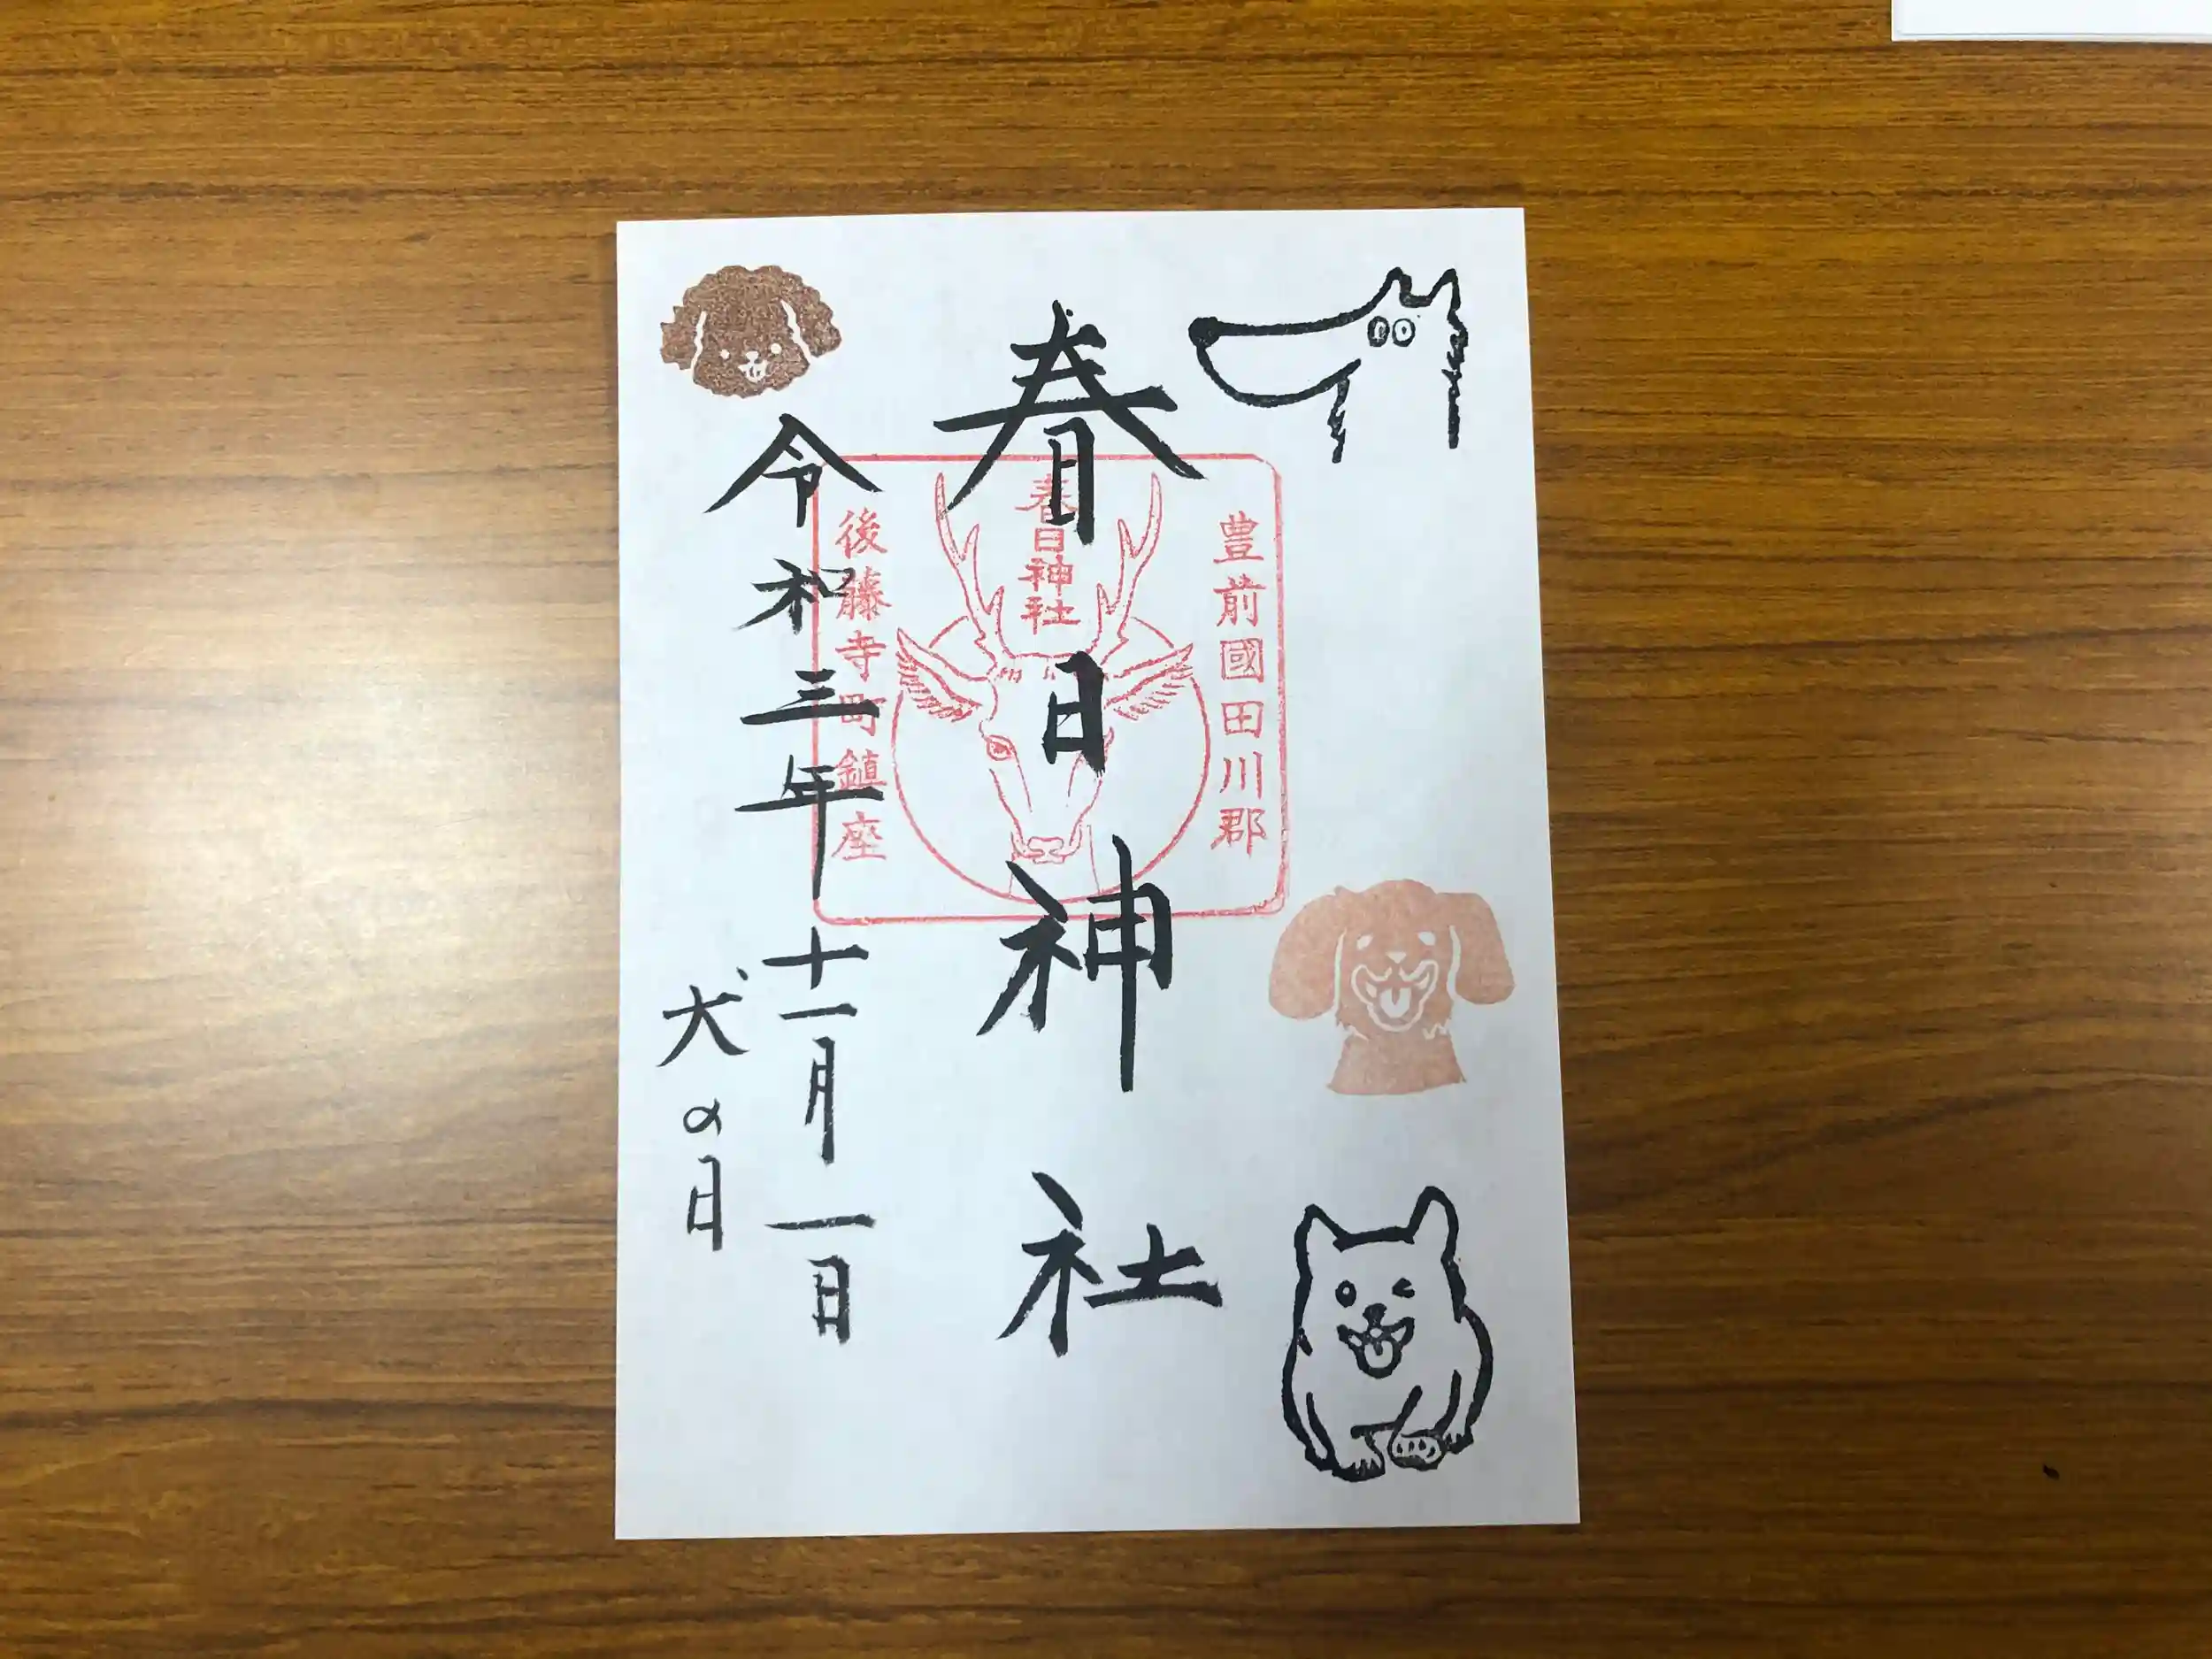 春日神社
豊前國田川郡
春日神社
後藤寺町鎮座
令和三年十一月一日
犬の日